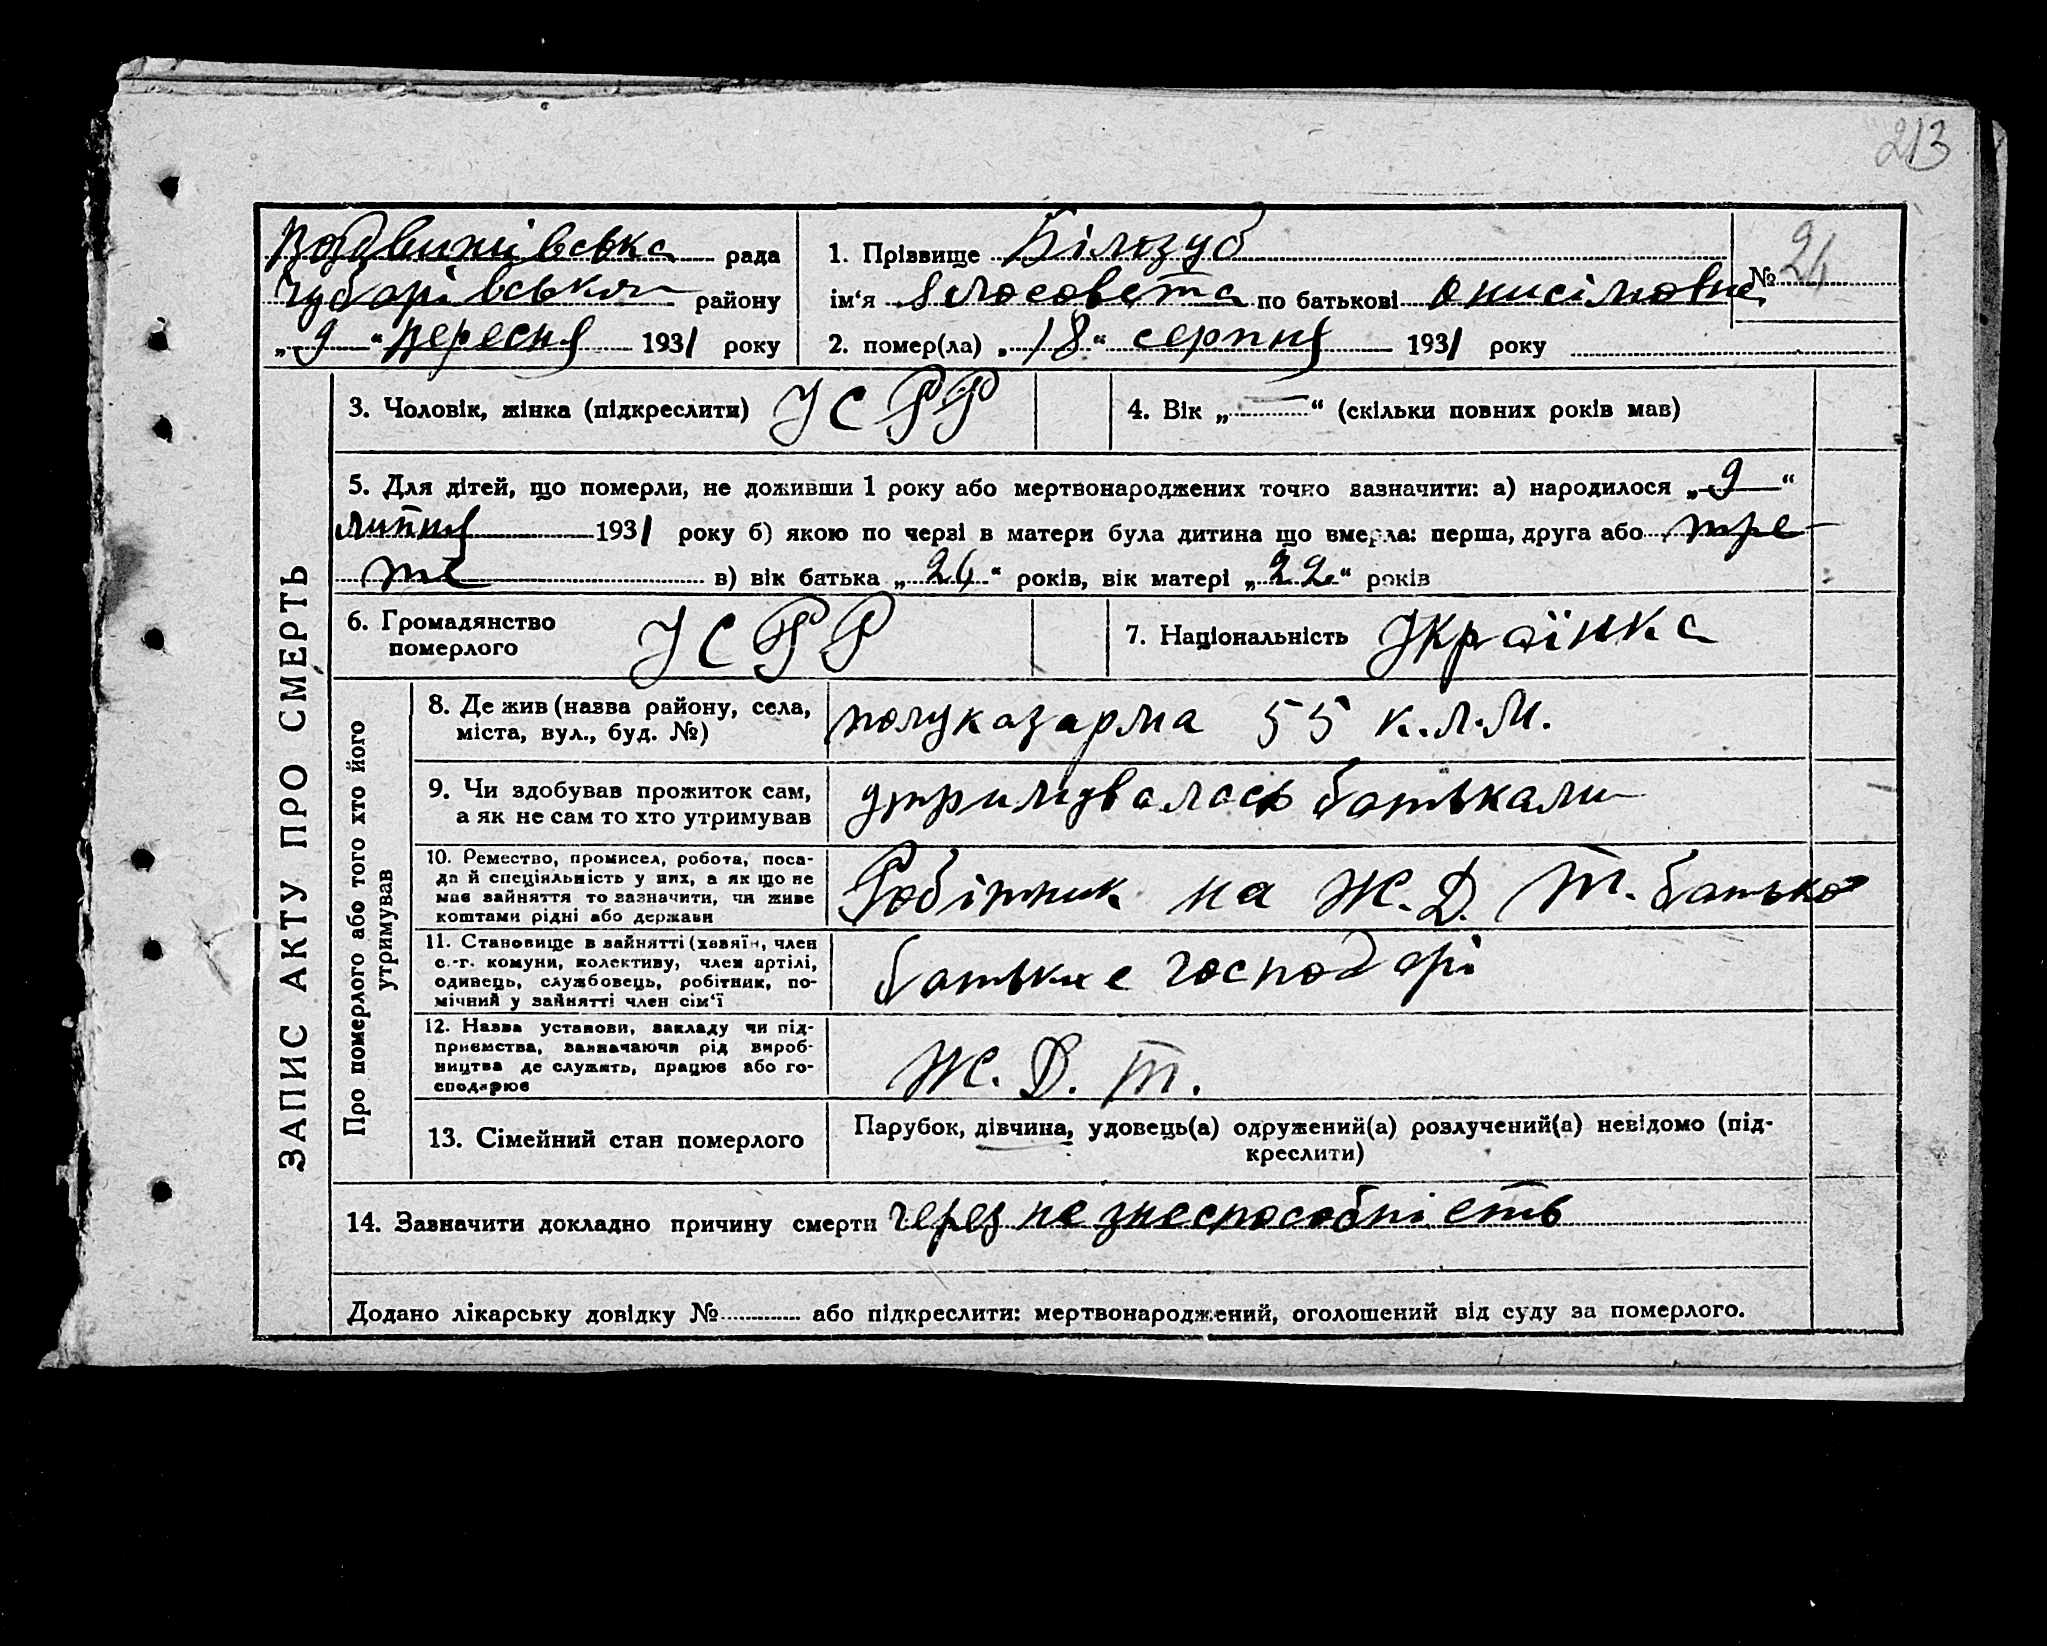 213
Воздвижівська рада
Чубарівського району
„ 9 “ вересня 1931 року
1. Прізвище Білозуб
ім‘я Єлосовета по батькові Онисімовна
№ 24
2. помер(ла) „ 18 “ серпня 1931 року
ЗАПИС АКТУ ПРО СМЕРТЬ
3. Чоловік, жінка (підкреслити) УСРР
4. Вік „ — “ (скільки повних років мав)
5. Для дітей, що померли, не доживши 1 року або мертвонароджених точно зазначити: а) народилося „ 9 “
липня 1931 року б) якою по черзі в матери була дитина що вмерла: перша, друга або тре-
тє в) вік батька „ 24 “ років, вік матері „ 22 “ років
6. Громадянство
померлого УСРР
7. Національність Українка
Про померлого або того хто його
утримував
8. Де жив (назва району, села,
міста, вул., буд. №)
полуказарма 55 к.л.м.
9. Чи здобував прожиток сам,
а як не сам то хто утримував
утримувалась батьками
10. Ремество, промисел, робота, поса-
да й спеціяльність у них, а як що не
має зайняття то зазначити, чи живе
коштами рідні або держави
Робітник на Ж.Д.Т. батько
11. Становище в зайнятті (хазяїн, член
с.-г. комуни, колективу, член артілі,
одинець, службовець, робітник, по-
мічний у зайнятті член сім‘ї
батьки є господарі
12. Назва установи, закладу чи під-
приємства, зазначаючи рід вироб-
ництва де служить, працює або го-
сподарює
Ж. Д. Т.
13. Сімейний стан померлого
Парубок, дівчина, удовець(а) одружений(а) розлучений(а) невідомо (під-
креслити)
14. Зазначити докладно причину смерти через не знеспособність
Додано лікарську довідку № або підкреслити: мертвонароджений, оголошений від суду за померлого.